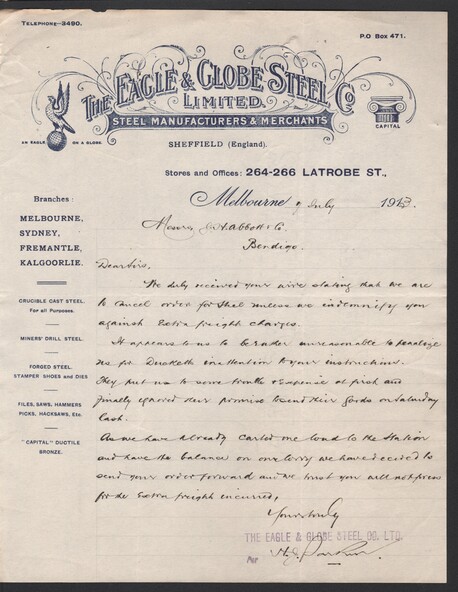 TELEPHONE-3490.
P.O Box 471.
THE EAGLE & GLOBE STEEL Co
LIMITED.
STEEL MANUFACTURERS & MERCHANTS
AN EAGLE ON A GLOBE
CAPITAL
SHEFFIELD (England).
Stores and Offices: 264-266 LATROBE ST.,
Melbourne 9 July 1913.
Branches:
MELBOURNE,
SYDNEY,
FREMANTLE,
KALGOORLIE.
CRUCIBLE CAST STEEL
For all Purposes.
MINERS' DRILL STEEL.
FORGED STEEL
STAMPER SHOES AND DIES
FILES, SAWS, HAMMERS
PICKS, HACKSAWS, Etc.
"CAPITAL" DUCTILE
BRONZE.
Messrs Abbott & Co.
Bendigo.
Dear Sirs,
We duly received your wire stating that we are
to cancel order for Steel unless we indemnify you
against Extra freight charges.
It appears to us to be rather unreasonable to penalize
us for inattention to your instructions.
They put us to some trouble & expense at first and
finally ignored their promise to send their goods on Saturday
last.
As we have already carted one load to the Station
and have the balance on our lorry we have decided to
send your order forward and we trust you will not press
for the Extra freight incurred,
Yours truly
THE EAGLE & GLOBE STEEL CO. LTD.
Per H. Parkin